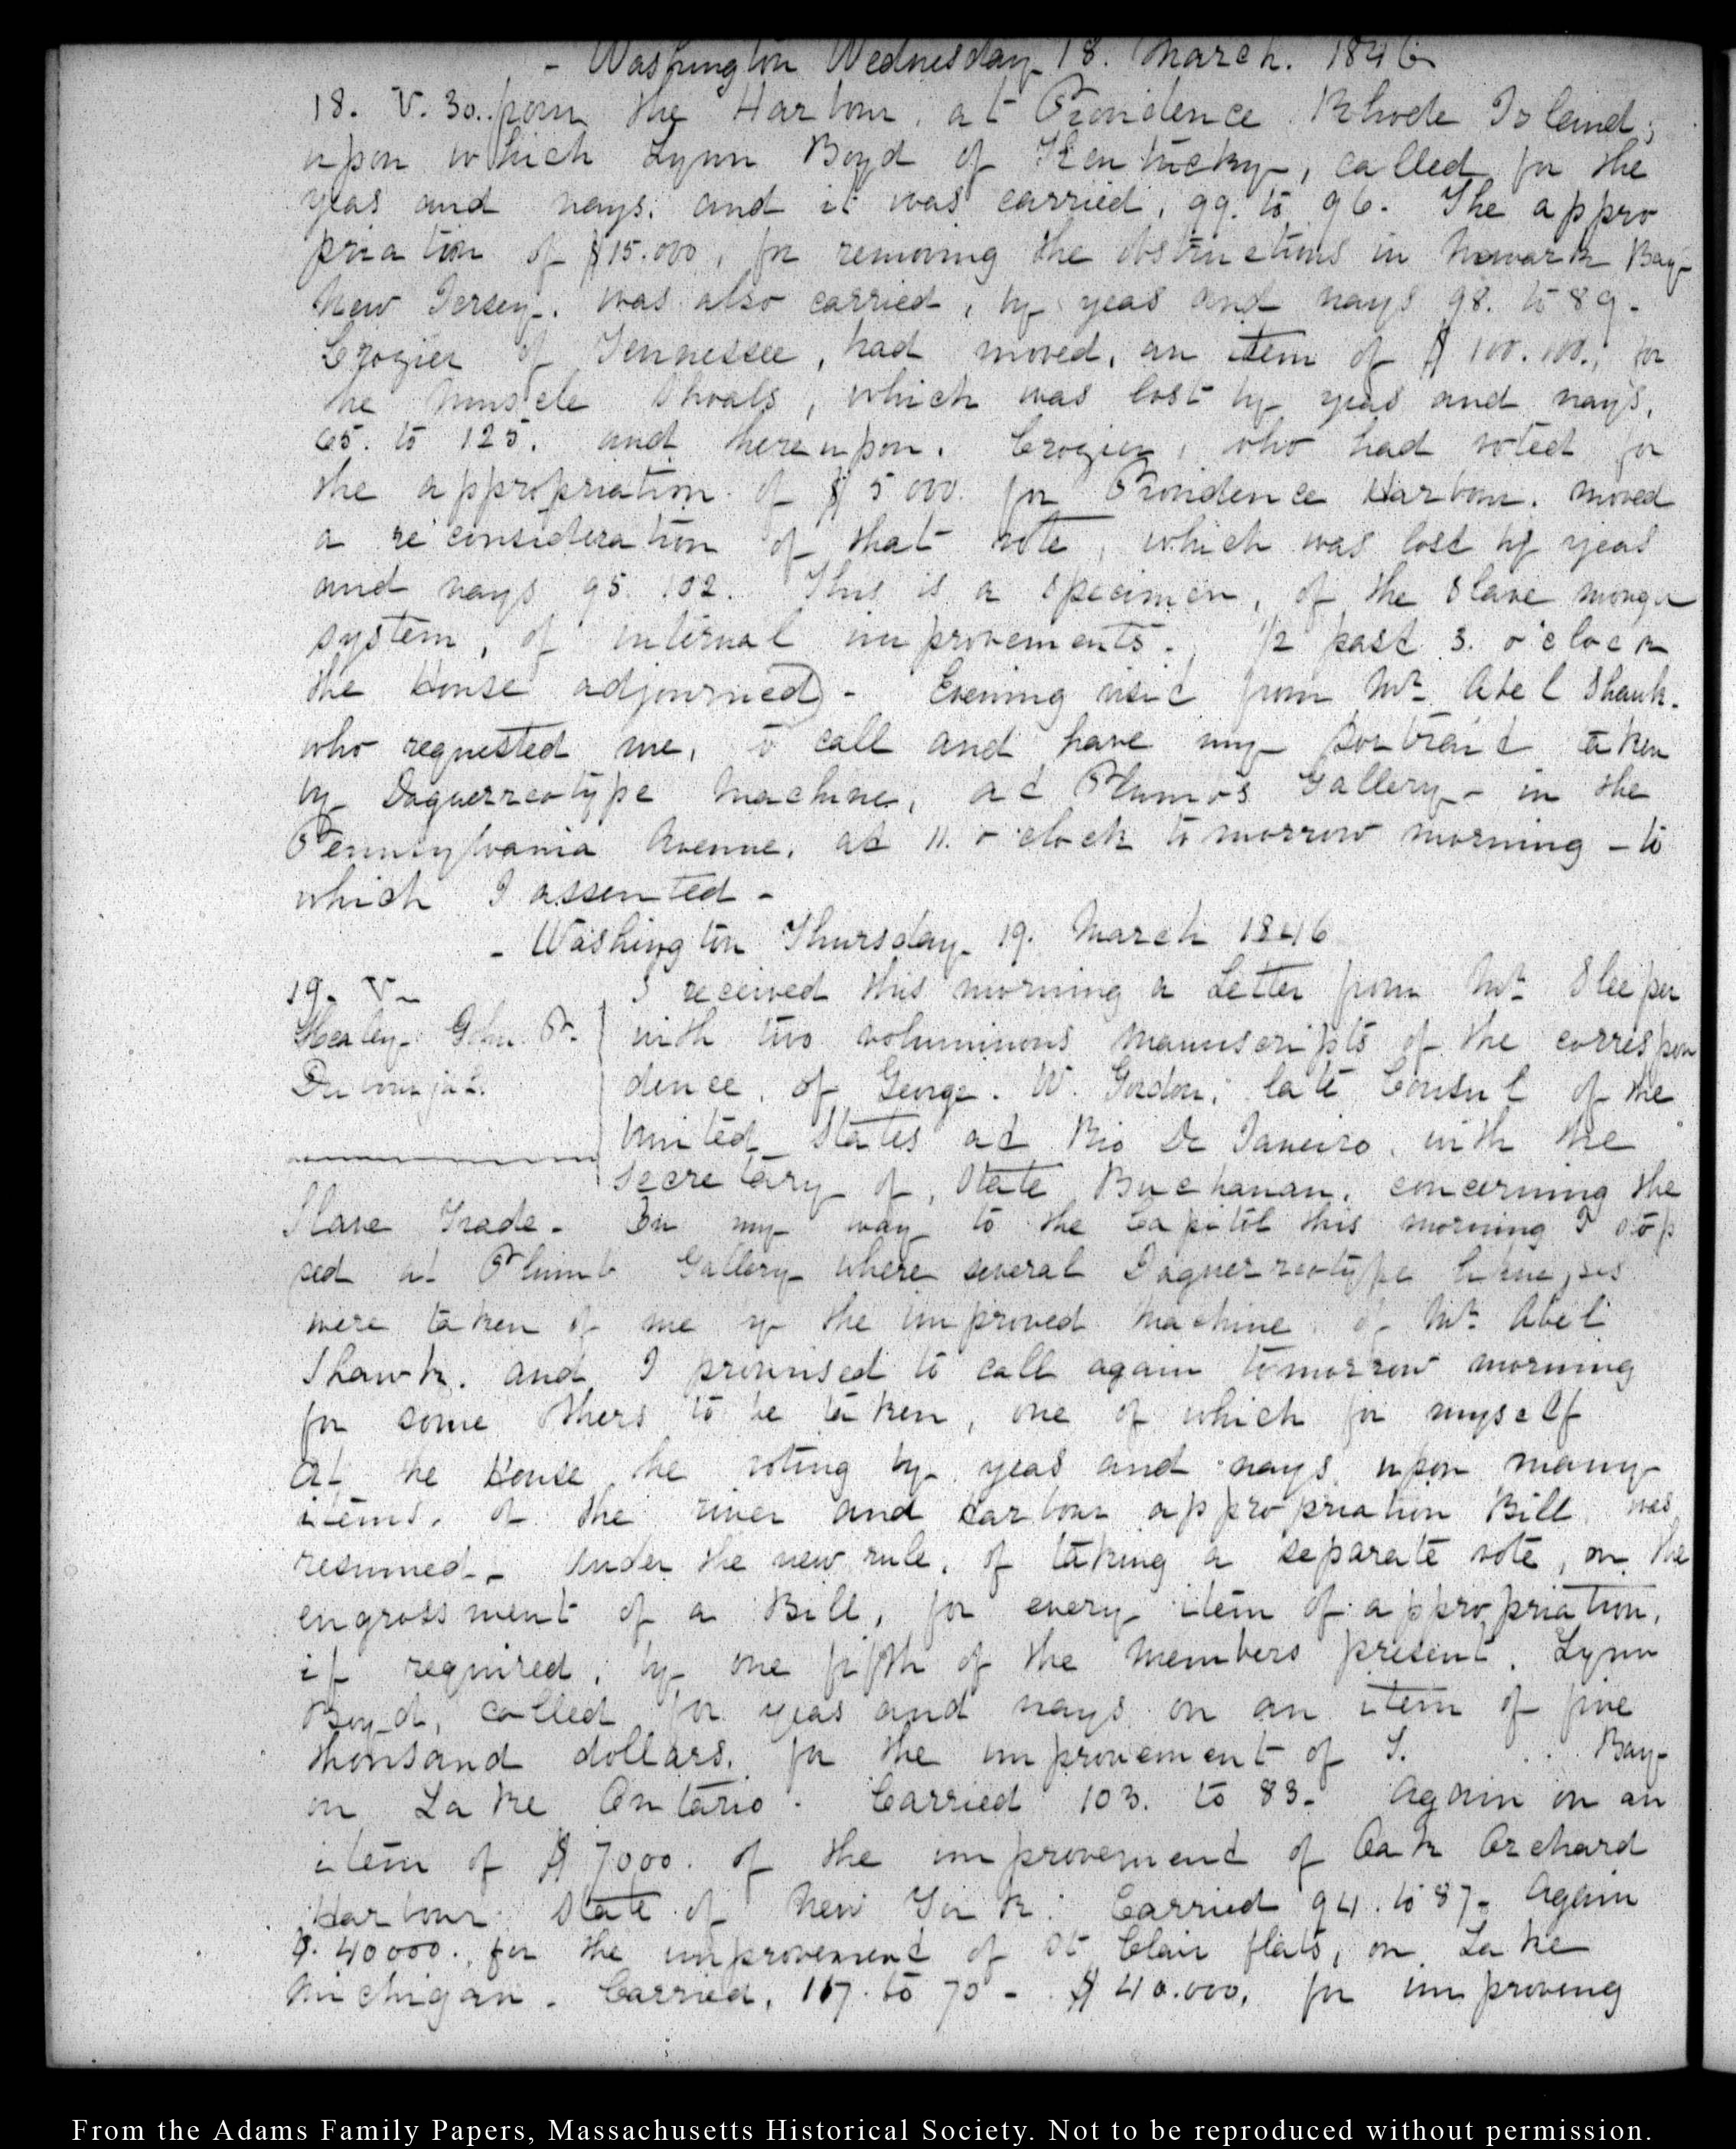 - Washington Wednesday 18. March. 1846
18. V. 30. from the Harbour, at Providence Rhode Island;
upon which Lynn Boyd of Kentucky, called for the
yeas and nays. and it was carried, 99. to 96. The appro
priation of $15.000, for removing the obstructions in Newark Bay
New Jersey. was also carried, by yeas and nays 98. to 89-
Crozier of Tennessee, had moved, an item of $100.000., for
the Muscle Shoals, which was lost by yeas and nays,
65. to 125. and thereupon. Crozier, who had voted for
the appropriation of $5000. for Providence Harbour. moved
a reconsideration of that vote, which was lost by yeas
and nays 95. 102. This is a specimen, of the Slave monger
system, of internal improvements. 1/2 past 3. o'clock
the House adjourned) - Evening visit from Mr. Abel Shank.
who requested me, to call and have my portrait taken
by Daguerreotype Machine, at Plumb's Gallery- in the
Pennsylvania Avenue, at 11. o'clock tomorrow morning - to
which I assented -
- Washington Thursday 19. March 1846
19. V-
Healey John P.
I received this morning a Letter from Mr. Sleeper
with two voluminous manuscripts of the correspon
dence, of George. W. Gordon; late Consul of the
United States at Rio De Janeiro, with the
Secretary of State Buchanan, concerning the
Slave Trade- In my way to the Capitol this morning I stop
ped at Plumb Gallery where several Daguerreotype likenesses
were taken of me by the improved Machine of Mr. Abel
Shawk. and I promised to call again tomorrow morning
for some others to be taken, one of which for myself
At the House the voting by yeas and nays upon many
items, of the river and harbour appropriation Bill was
resumed- Under the new rule, of taking a separate vote, on the
engrossment of a Bill, for every item of appropriation,
if required, by one fifth of the Members present. Lynn
Boyd, called for yeas and nays on an item of five
thousand dollars. for the improvement of S. . . Bay-
on Lake Ontario. Carried 103. to 83- Again on an
item of $7000. of the improvement of Oak Orchard
Harbour State of New York: Carried 94. to 87- Again
$. 40000. for the improvement of St Clair flats, on Lake
Michigan. Carried, 117. to 70- $40.000, for improving
From the Adams Family Papers, Massachusetts Historical Society. Not to be reproduced without permission.